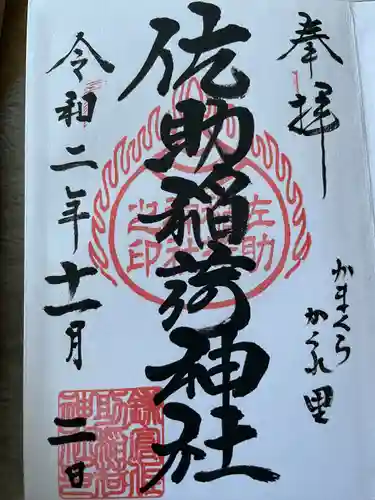 奉拝
かまくら
かくれ里
佐助稲荷神社
令和二年十一月二日
佐助稲荷神社之印